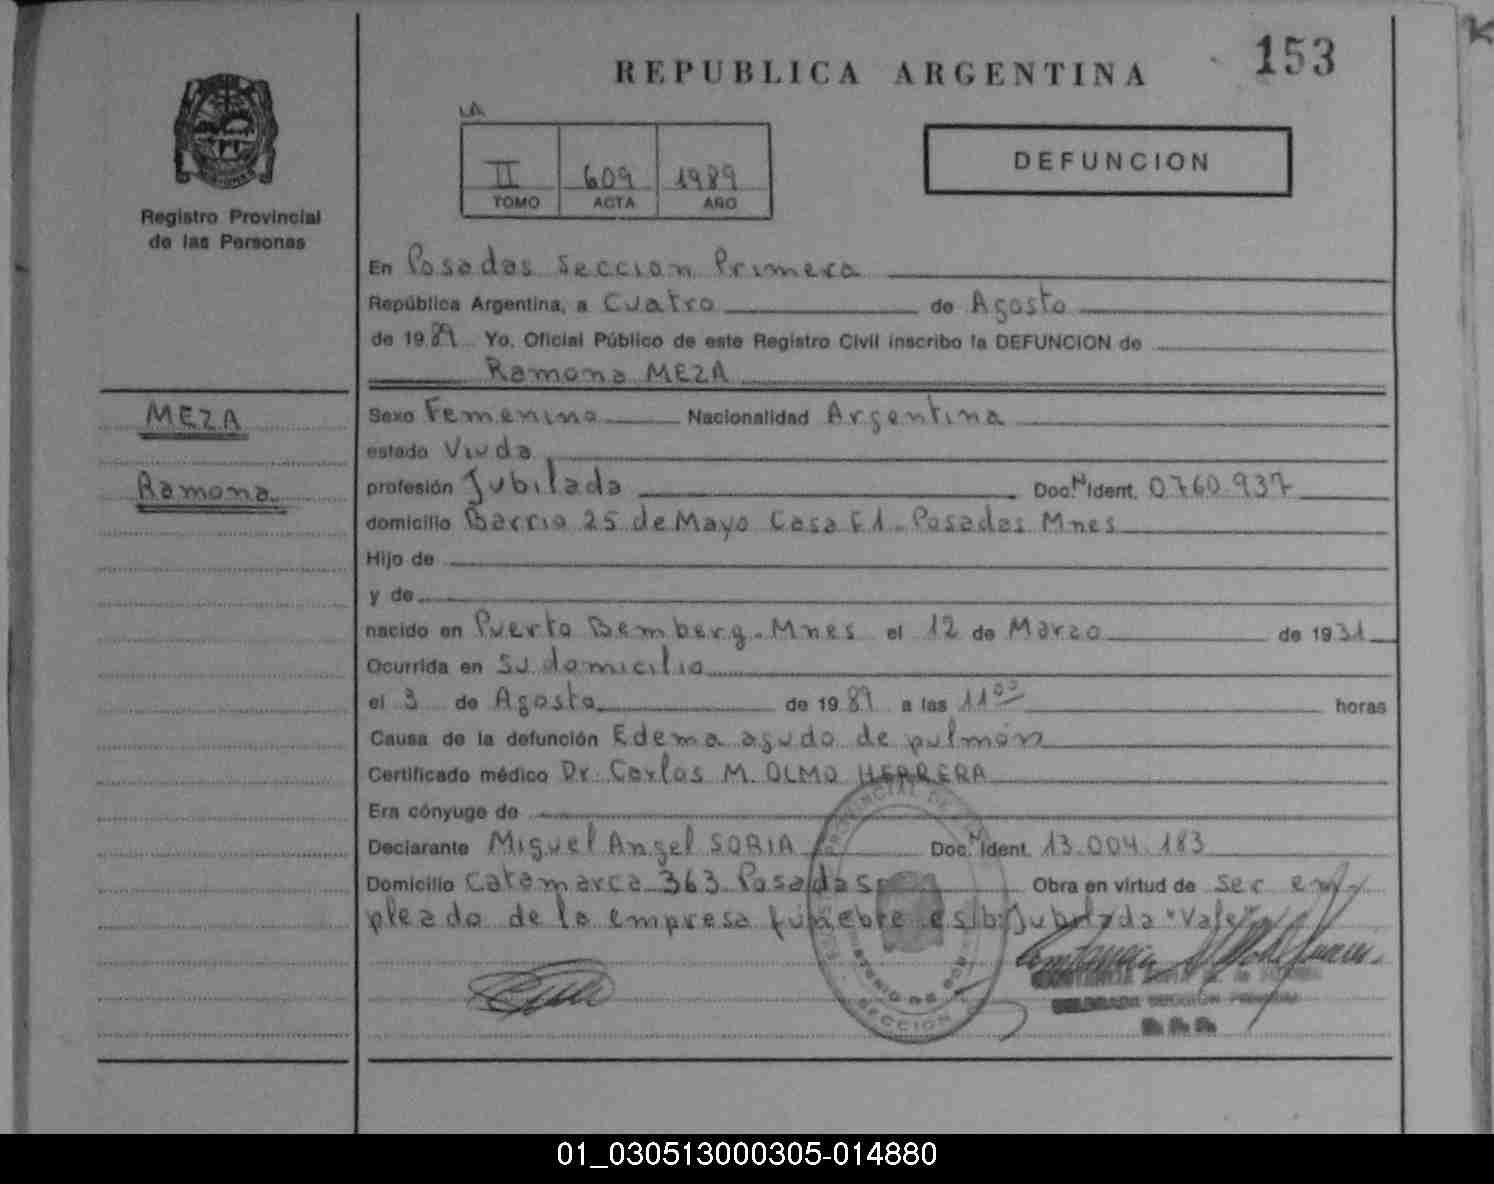 153
REPUBLICA ARGENTINA
LA
II 609 1989
TOMO ACTA AÑO
DEFUNCION
Registro Provincial
de las Personas
En Posadas Seccion Primera
República Argentina, a Cuatro de Agosto
de 1989 Yo, Oficial Público de este Registro Civil inscribo la DEFUNCION de
Ramona MEZA
MEZA
Ramona
Sexo Femenino Nacionalidad Argentina
estado Viuda
profesión Jubilada Doc. N Ident. 0760.937
domicilio Barrio 25 de Mayo Casa E1. Posadas Mnes
Hijo de
y de
nacido en Puerto Bemberg. Mnes el 12 de Marzo de 1931
Ocurrida en Su domicilio
el 3 de Agosto de 1989 a las 11⁰⁰ horas
Causa de la defunción Edema agudo de pulmón
Certificado médico Dr. Carlos M. OLMO HERRERA
Era cónyuge de
Declarante Miguel Angel SORIA Doc. N Ident. 13.004.183
Domicilio Catamarca 363 Posadas Obra en virtud de ser em-
pleado de la empresa fúnebre Jubilada "Vale"
PROVINCIAL DE
SECCION
DELEGADA SECCION PRIMERA
R.P.P.
01_030513000305-014880